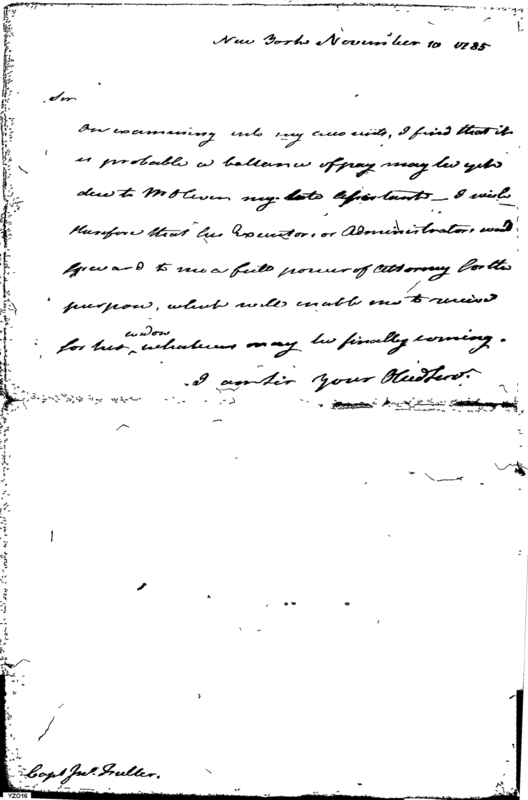 New York November 10 1785
Sir
On examining into my accounts, I find that it
is probable a ballance of pay may be yet
due to Mr Oliver my late Assistant — I wish
therefore that his Executors or Administrators would
forward to me a full power of Attorney for the
purpose, which will enable me to receive
for his widow, whatever may be finally coming.
I am Sir your Obed Serv.
Capt Jno. Fuller.
YZO16